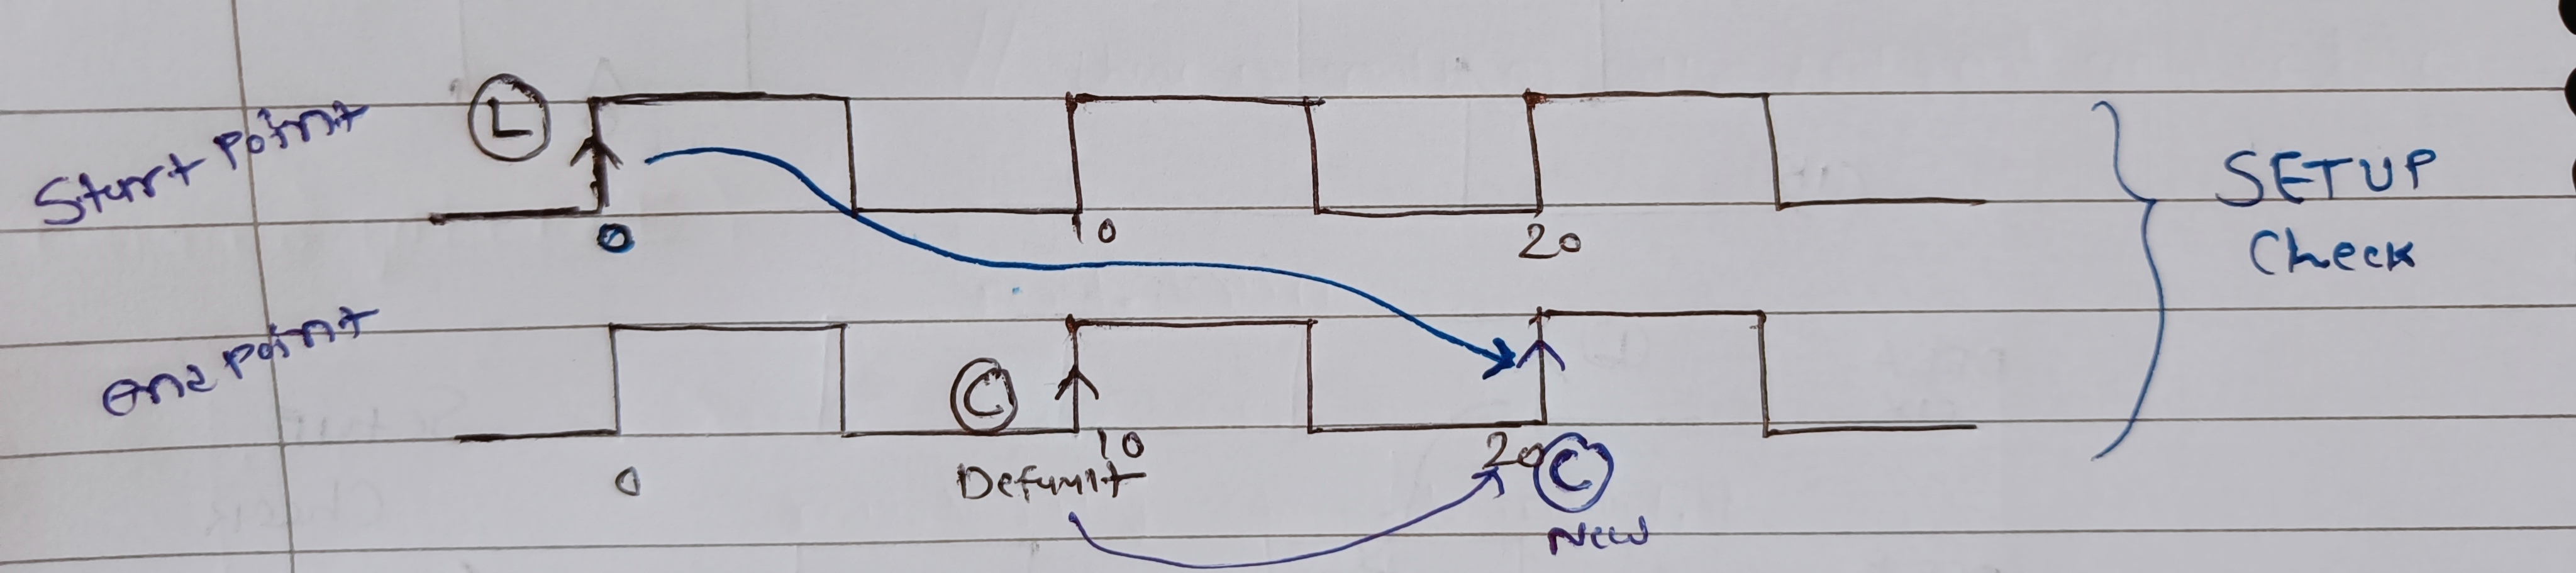 Start point
L
0
10
20
SETUP
Check
end point
C
0
10
20
C
Default
New